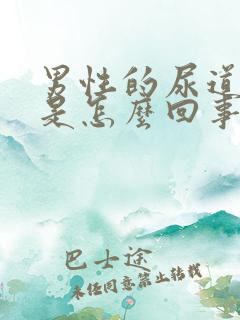 男性的尿道
是怎麼回事
巴士途
未经同意禁止转载